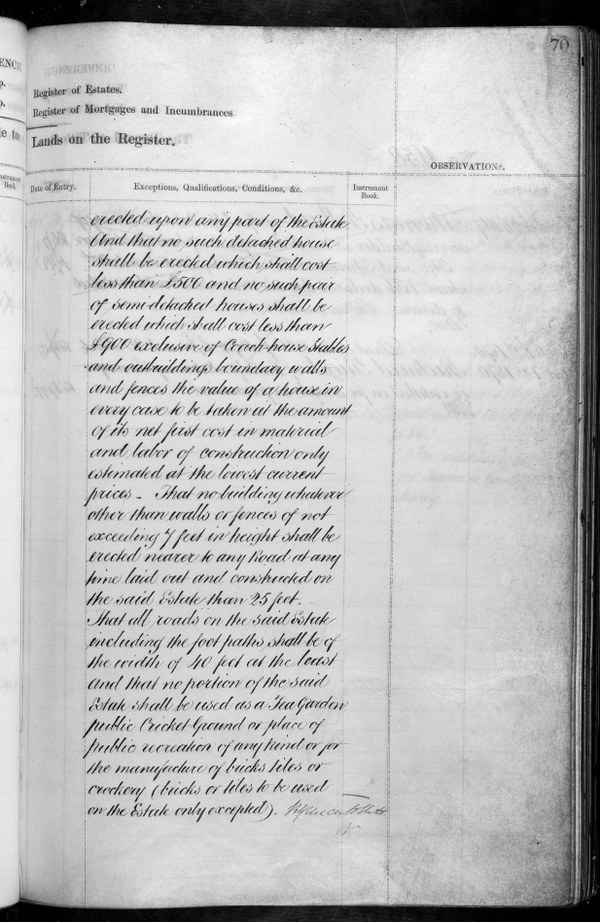 70
ENCE
p.
p.
le to
Instrument
Book.
Register of Estates.
Register of Mortgages and Incumbrances.
Lands on the Register.
OBSERVATIONS.
Date of Entry.
Exceptions, Qualifications, Conditions, &c.
Instrument
Book.
erected upon any part of the Estate
And that no such detached house
shall be erected which shall cost
less than £500 and no such pair
of semi-detached houses shall be
erected which shall cost less than
£900 exclusive of Coach-house Stables
and outbuildings boundary walls
and fences the value of a house in
every case to be taken at the amount
of its net first cost in material
and labor of construction only
estimated at the lowest current
prices - That no building whatever
other than walls or fences of not
exceeding 7 feet in height shall be
erected nearer to any Road at any
time laid out and constructed on
the said Estate than 25 feet.
That all roads on the said Estate
including the foot paths shall be of
the width of 40 feet at the least
and that no portion of the said
Estate shall be used as a Tea Garden
public Cricket Ground or place of
public recreation of any kind or for
the manufacture of bricks tiles or
crockery (bricks or tiles to be used
on the Estate only excepted).